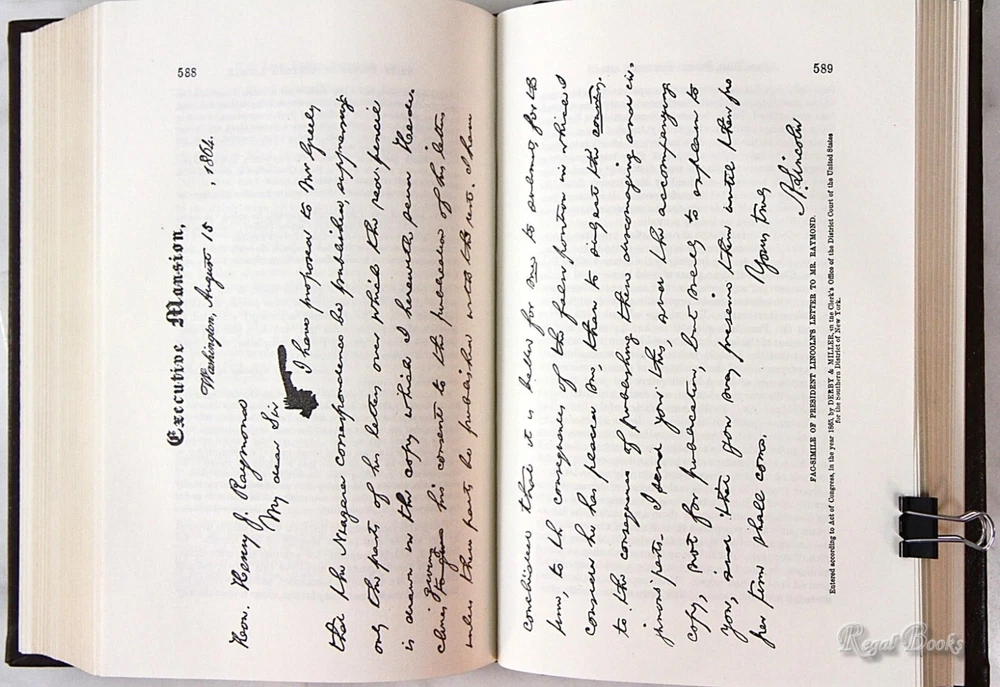 588
Executive Mansion,
Washington, August 15, 1864.
Hon. Henry J. Raymond
My dear Sir
I have proposed to Mr Greely
that the Niagara correspondence be published, suppressing
only the parts of his letters over which the red-pencil
is drawn in the copy which I herewith send. He de-
giving
clines his consent to the publication of his letters
unless these parts be published with the rest. I have
589
concluded that it is better for me to submit, for the
time, to the consequences of the false position in which I
consider he has placed me, than to subject the country
to the consequences of publishing these discouraging and in-
jurious parts. I send you this, and the accompanying
copy, not for publication, but merely to explain to
you, and that you may preserve them until their pro
per time shall come.
Yours truly
A. Lincoln
FAC-SIMILE OF PRESIDENT LINCOLN'S LETTER TO MR. RAYMOND.
Entered according to Act of Congress, in the year 1865, by DERBY & MILLER, in the Clerk's Office of the District Court of the United States
for the Southern District of New York.
Regal Books